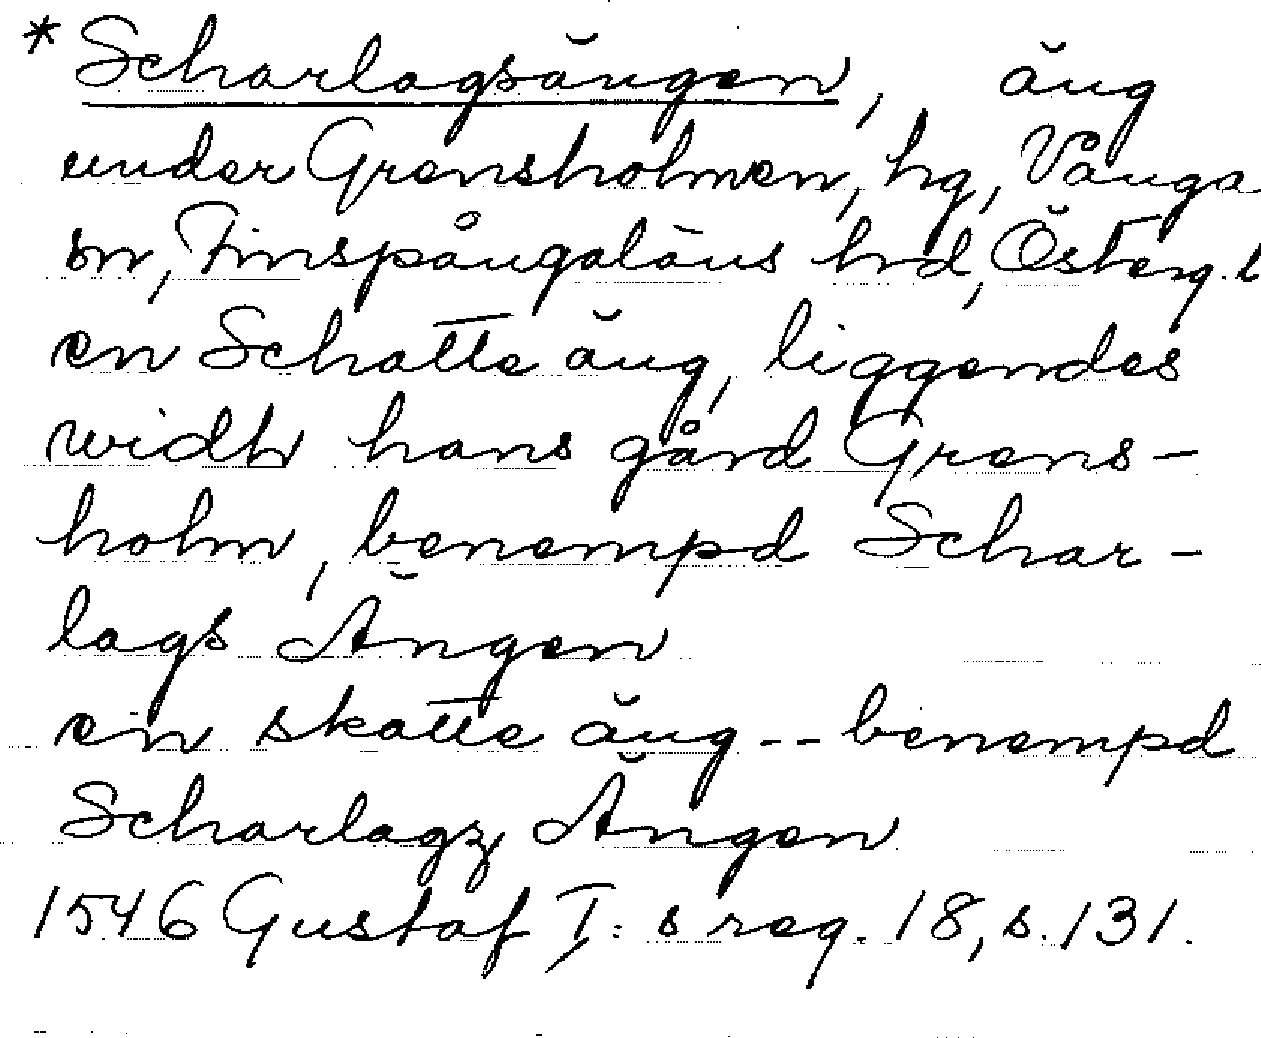 * Scharlagsängen, äng
under Grensholmen, hg, Vånga
sn, Finspångaläns hrd, Österg. l
en Schatte äng, liggendes
widh hans gård Grens-
holm, benempd Schar-
lags Ängen
en skatte äng -- benempd
Scharlagz Ängen
1546 Gustaf I: s reg. 18, s. 131.